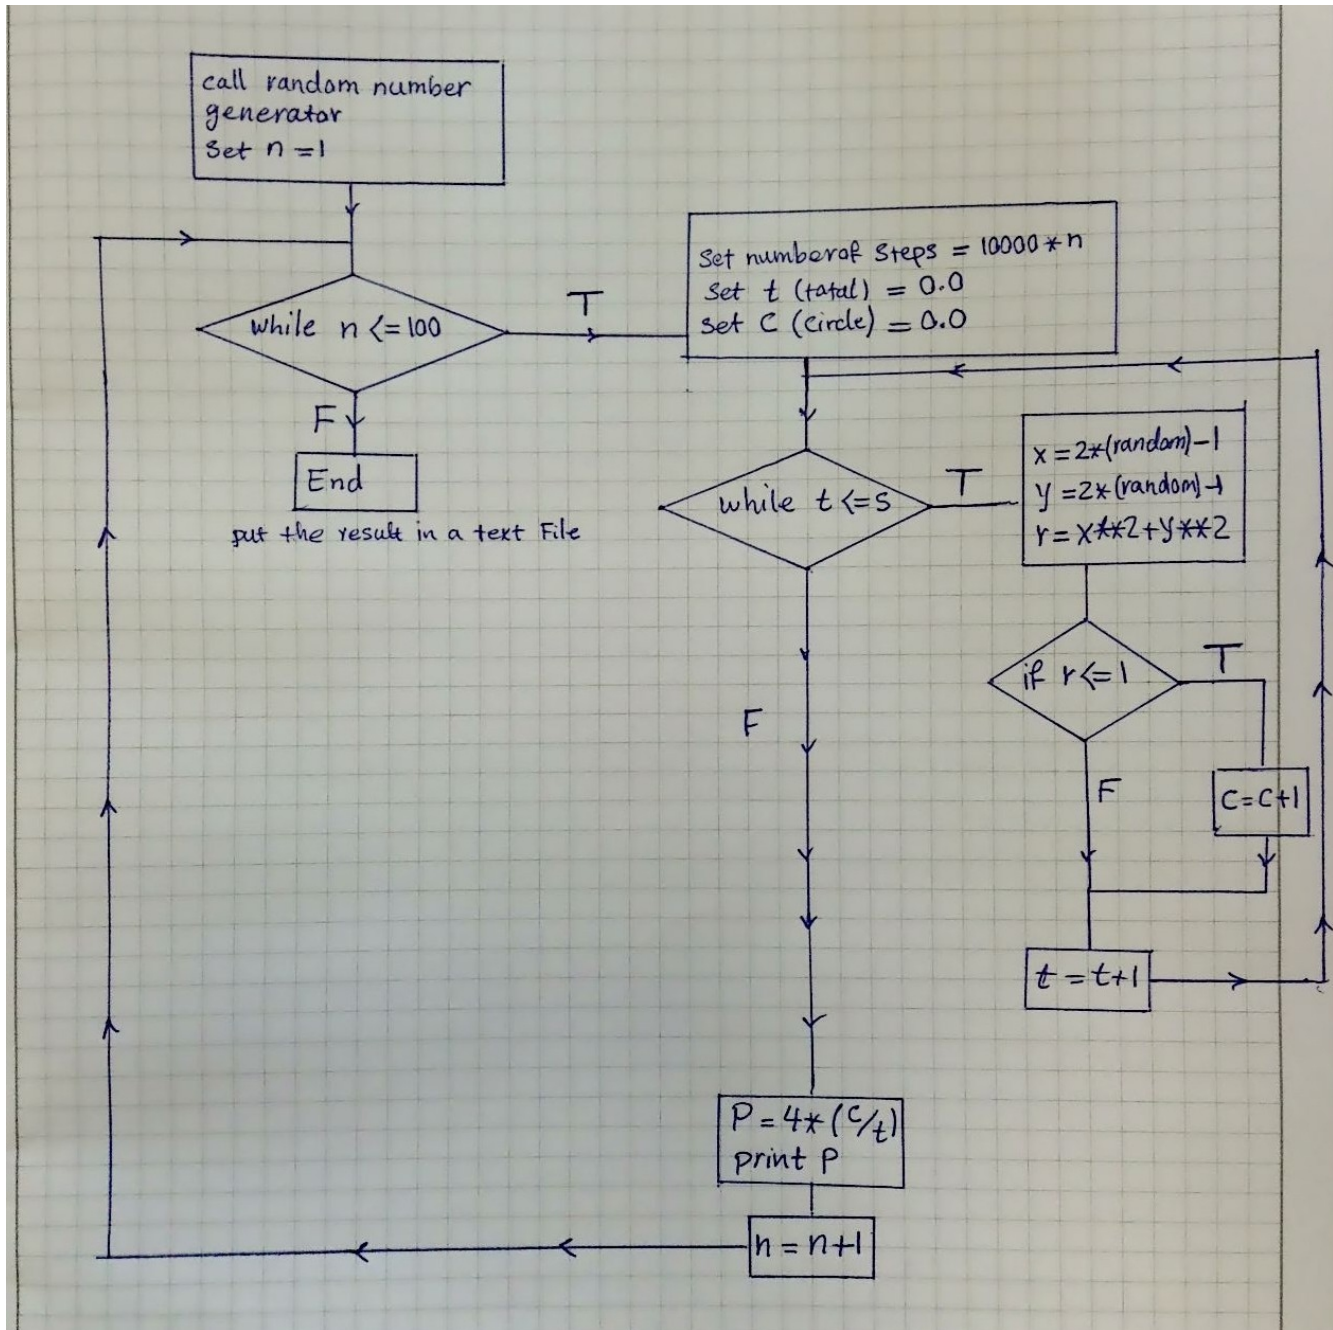 call random number
generator
Set n = 1
while n <= 100
T
F
End
put the result in a text File
Set number of Steps = 10000 * n
Set t (total) = 0.0
Set C (Circle) = 0.0
while t <= S
T
F
x = 2*(random)-1
y = 2*(random)-1
r = x**2+y**2
if r <= 1
T
F
C = C+1
t = t+1
P = 4*(c/t)
print P
n = n+1